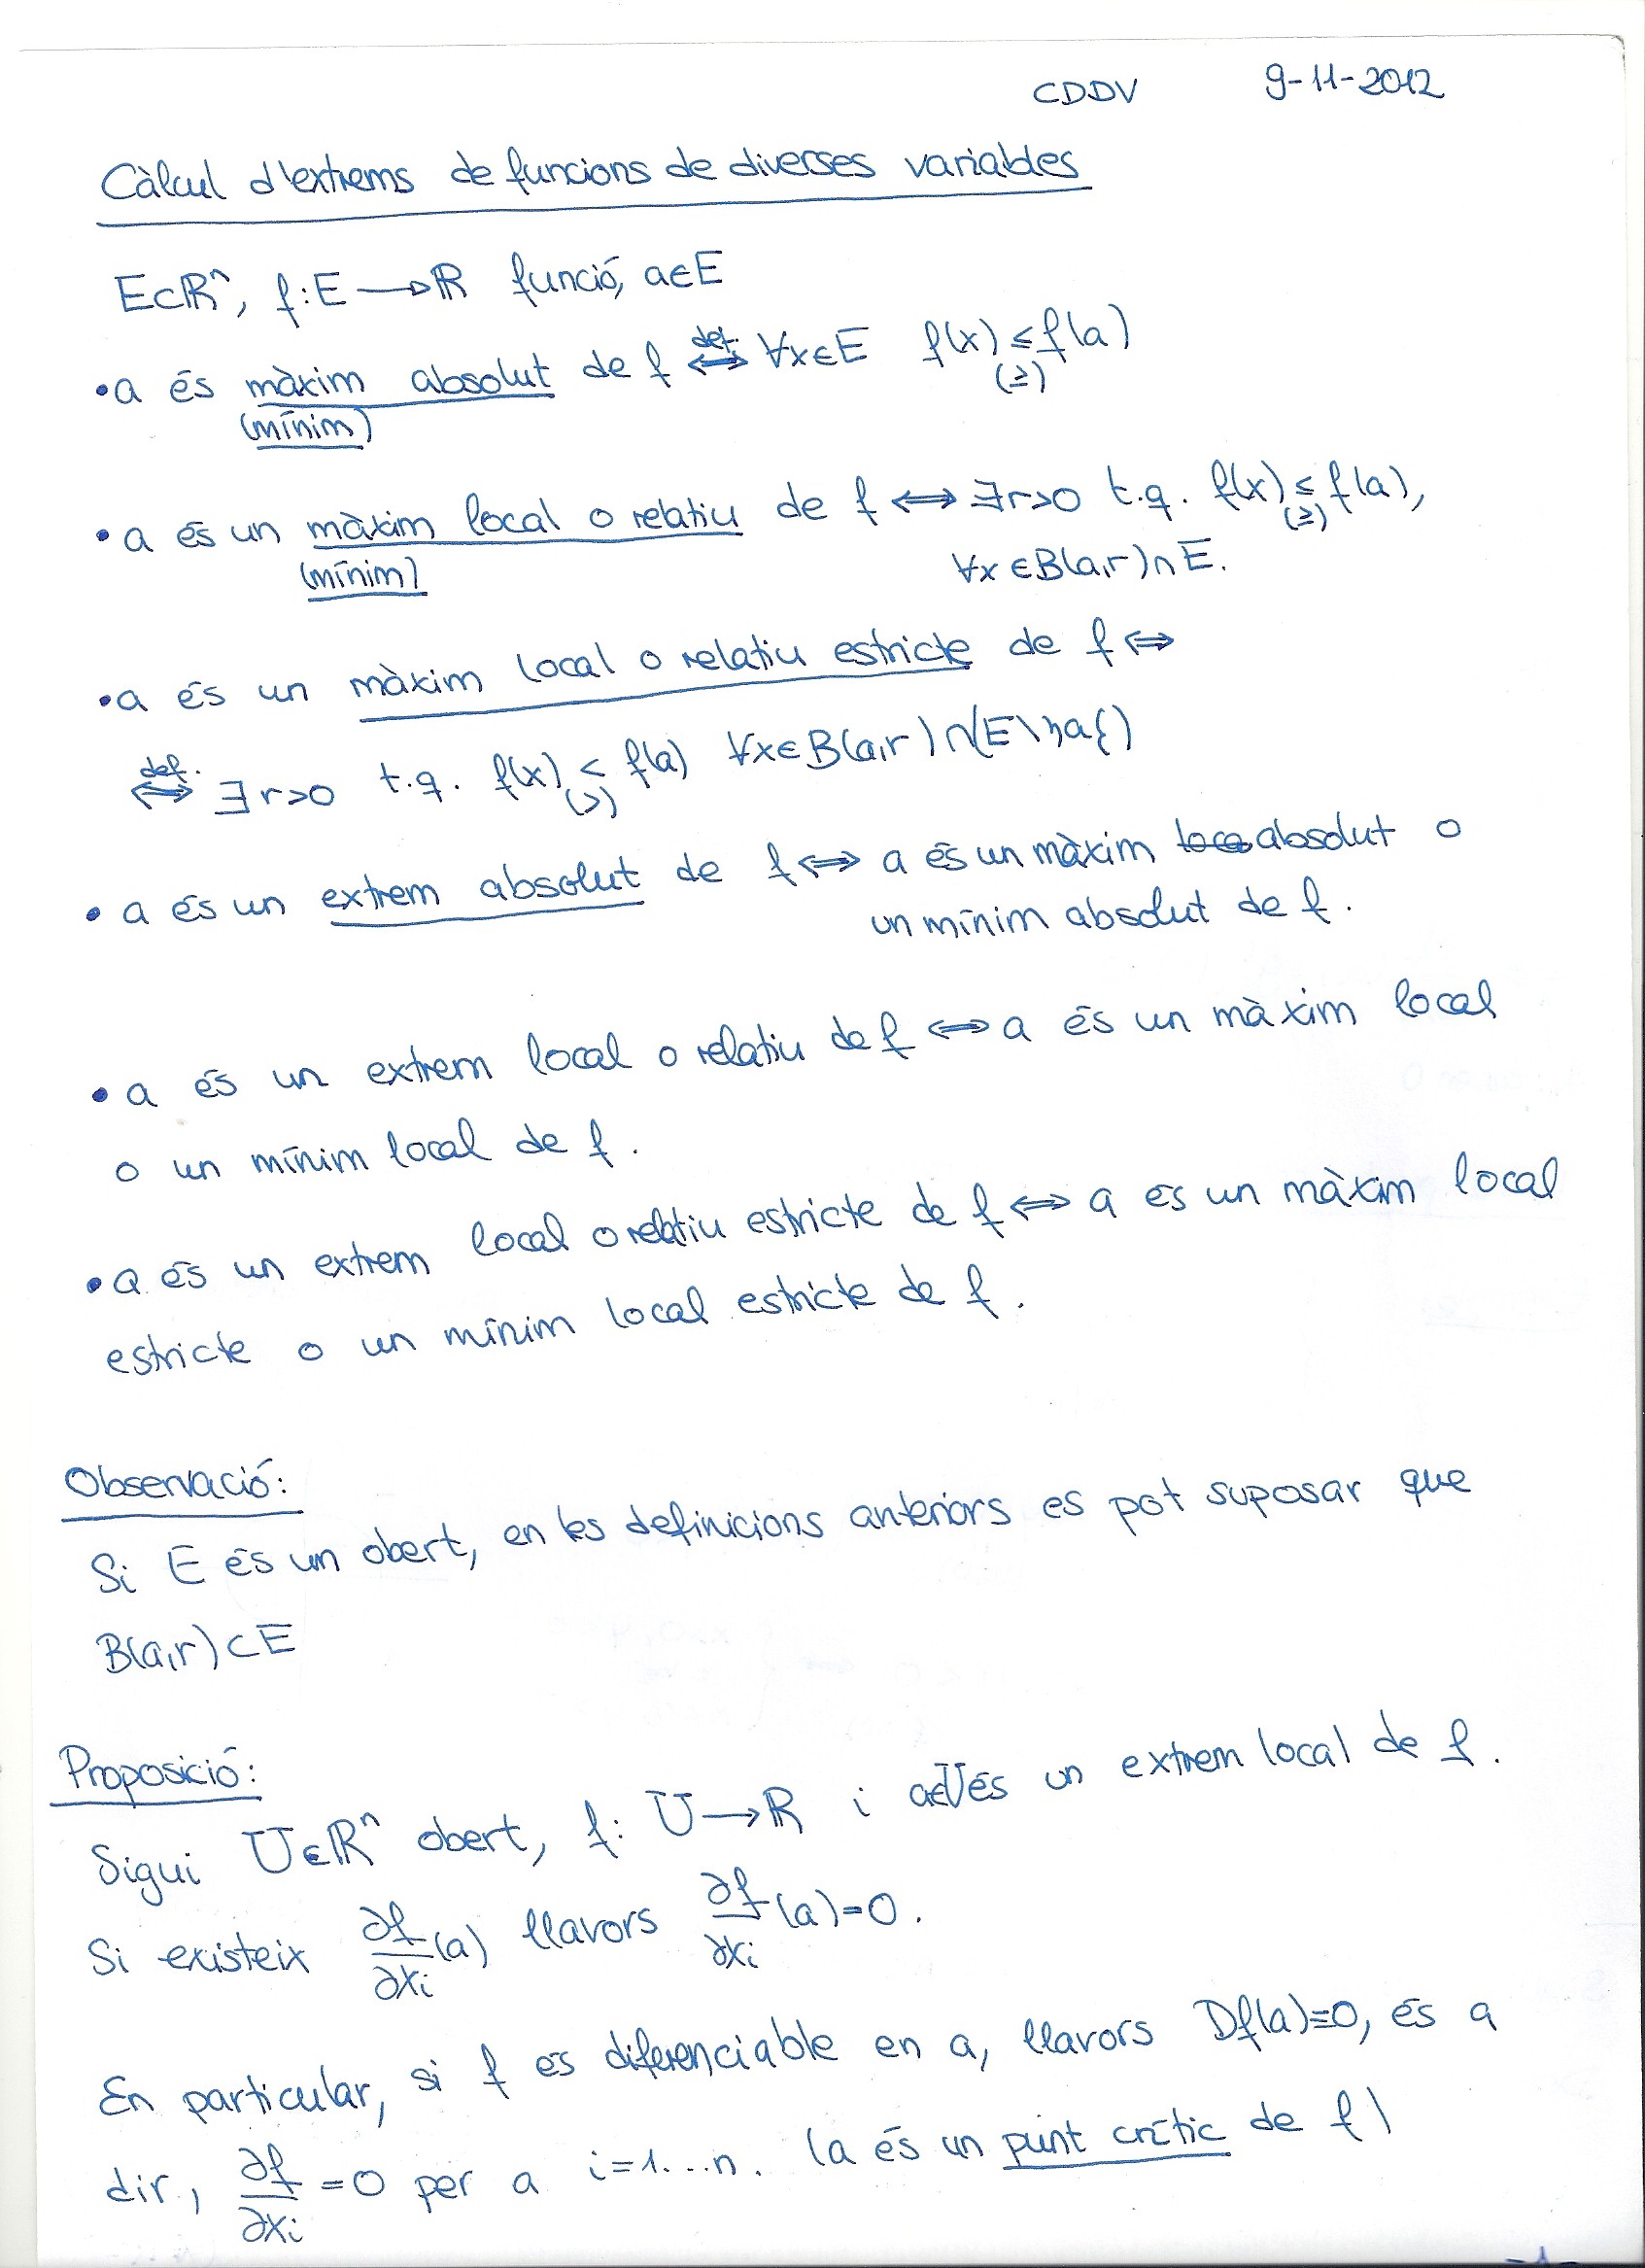 CDDV 9-11-2012
Càlcul d'extrems de funcions de diverses variables
E⊂ℝⁿ, f:E→ℝ funció, a∈E
• a és màxim absolut de f ⟺(def.) ∀x∈E f(x) ≤ f(a)
(mínim) (≥)
• a és un màxim local o relatiu de f ⟺ ∃r>0 t.q. f(x) ≤ f(a),
(mínim) (≥)
∀x∈B(a,r)∩E.
• a és un màxim local o relatiu estricte de f ⟺
⟺(def.) ∃r>0 t.q. f(x) < f(a) ∀x∈B(a,r)∩(E\}a{)
(>)
• a és un extrem absolut de f ⟺ a és un màxim absolut o
un mínim absolut de f.
• a és un extrem local o relatiu de f ⟺ a és un màxim local
o un mínim local de f.
• a és un extrem local o relatiu estricte de f ⟺ a és un màxim local
estricte o un mínim local estricte de f.
Observació:
Si E és un obert, en les definicions anteriors es pot suposar que
B(a,r)⊂E
Proposició:
Sigui U∈ℝⁿ obert, f: U→ℝ i a∈U és un extrem local de f.
Si existeix ∂f/∂xi (a) llavors ∂f/∂xi (a)=0.
En particular, si f és diferenciable en a, llavors Df(a)=0, és a
dir, ∂f/∂xi =0 per a i=1...n. (a és un punt crític de f)
-1-